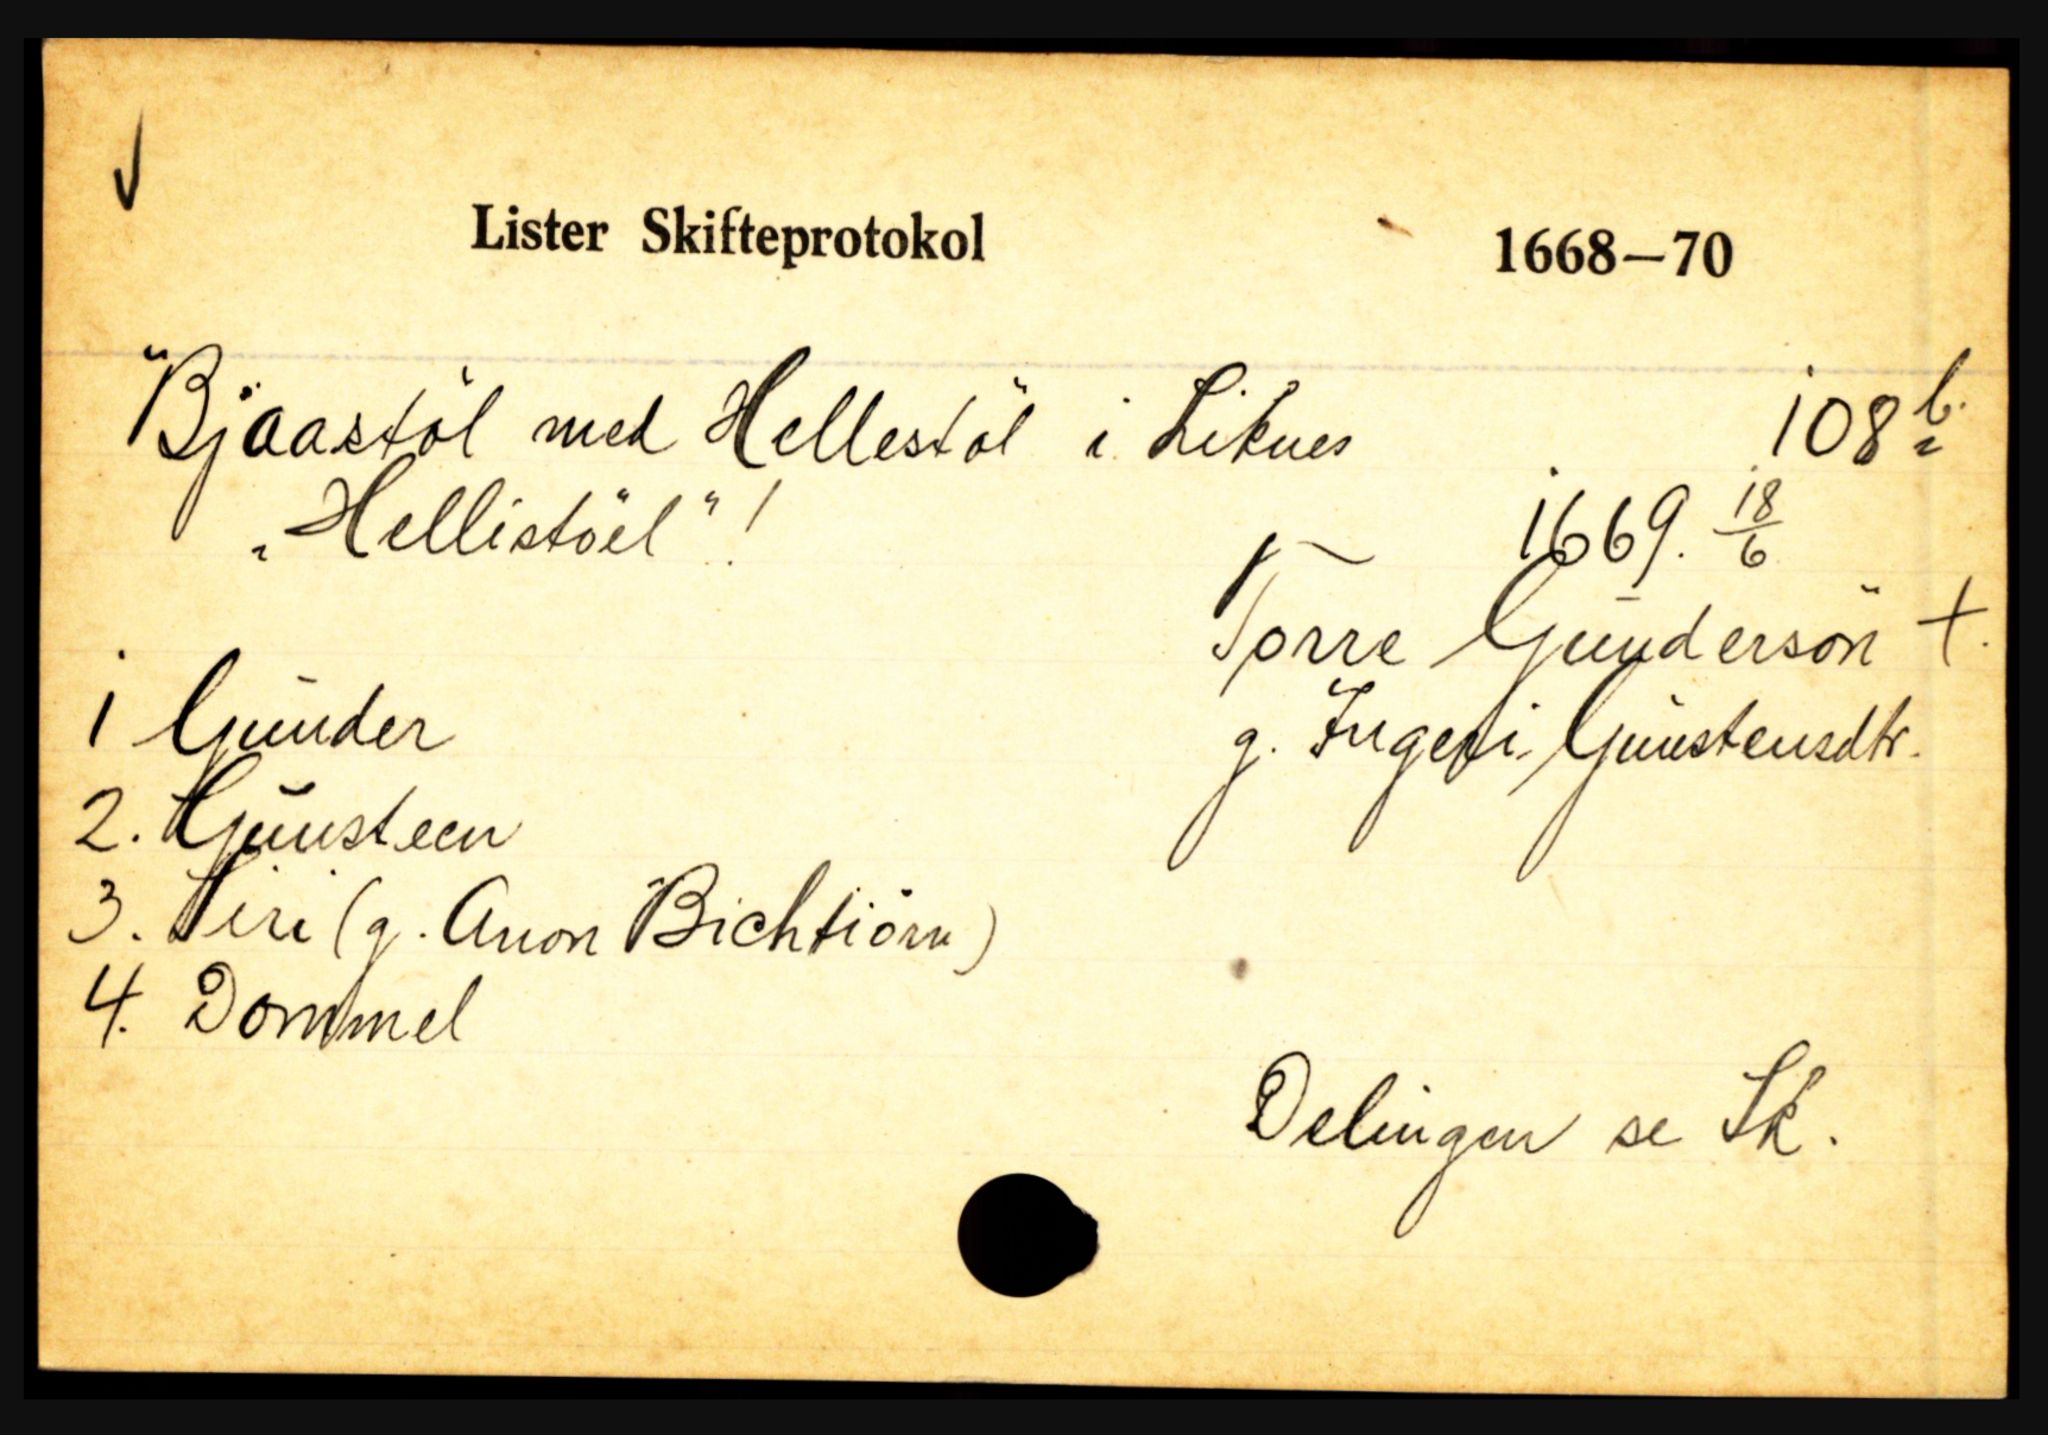 Lister Skifteprotokol 1668—70
Bjaastöl med Hellestöl i Liknes 108 b.
„Hellistöel"! 1669. 18/6
Torre Gundersön +.
1 Gunder g. Ingeri Gunstensdtr.
2. Gunsteen
3. Siri (g. Anon Bichtiörn)
4. Dommel
Delingen se Sk.